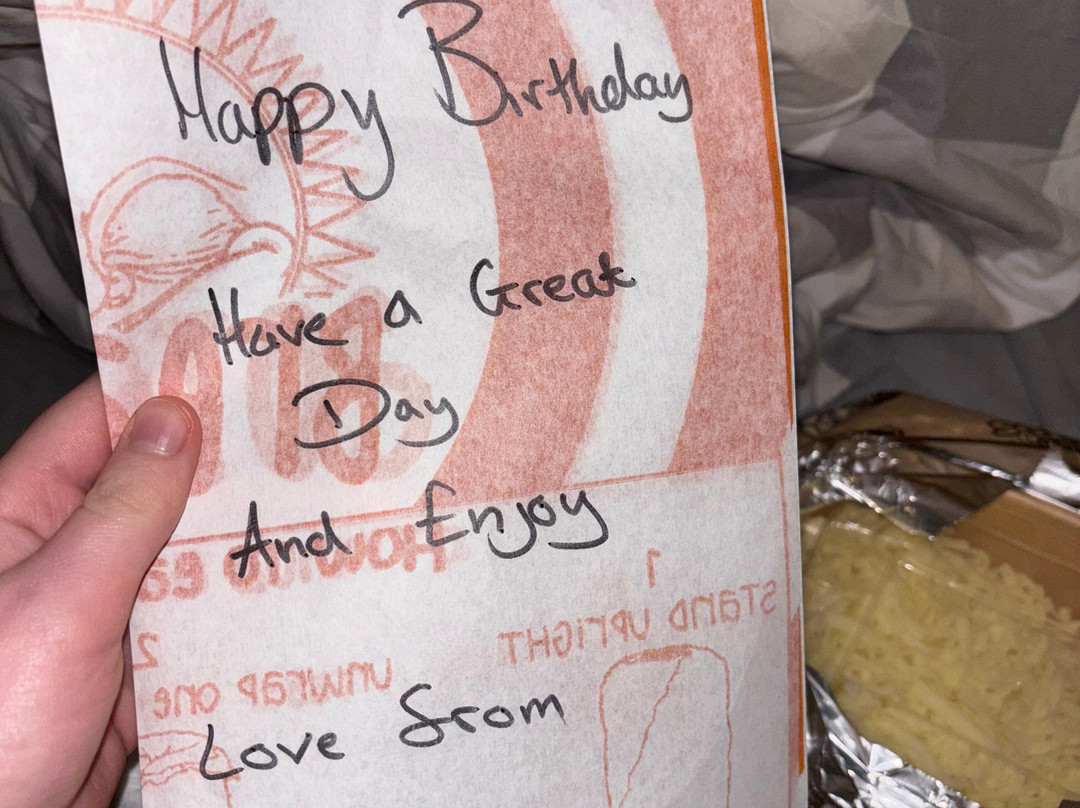 Happy Birthday
Have a Great
Day
And Enjoy
HOW TO
1
STAND UPRIGHT
2
UNWRAP ONE
Love from